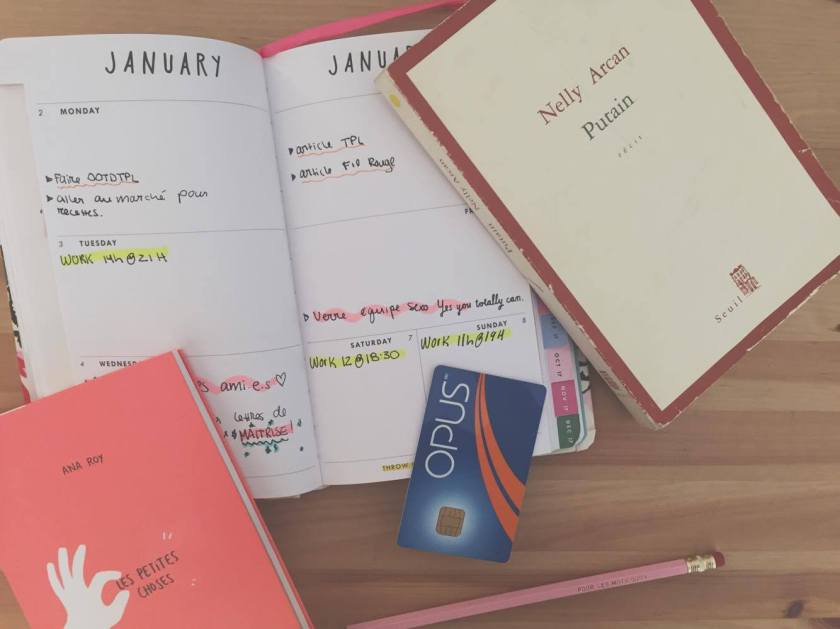 JANUARY
2 MONDAY
▸ Faire OOTDTPL
▸ aller au marché pour
recettes.
3 TUESDAY
WORK 14h @ 21H
4 WEDNESD
ami.e.s ♡
lettres de
MAITRISE!
JANUA
▸ article TPL
▸ article Fil Rouge
▸ Verre equipe Sexo Yes you totally can.
SATURDAY 7
WORK 12 @ 18:30
SUNDAY 8
WORK 11h @ 19H
THROW
OCT 17
NOV 17
DEC 17
Nelly Arcan
Putain
récit
Seuil
Putain Nelly Arcan
OPUS
ANA ROY
LES PETITES
CHOSES